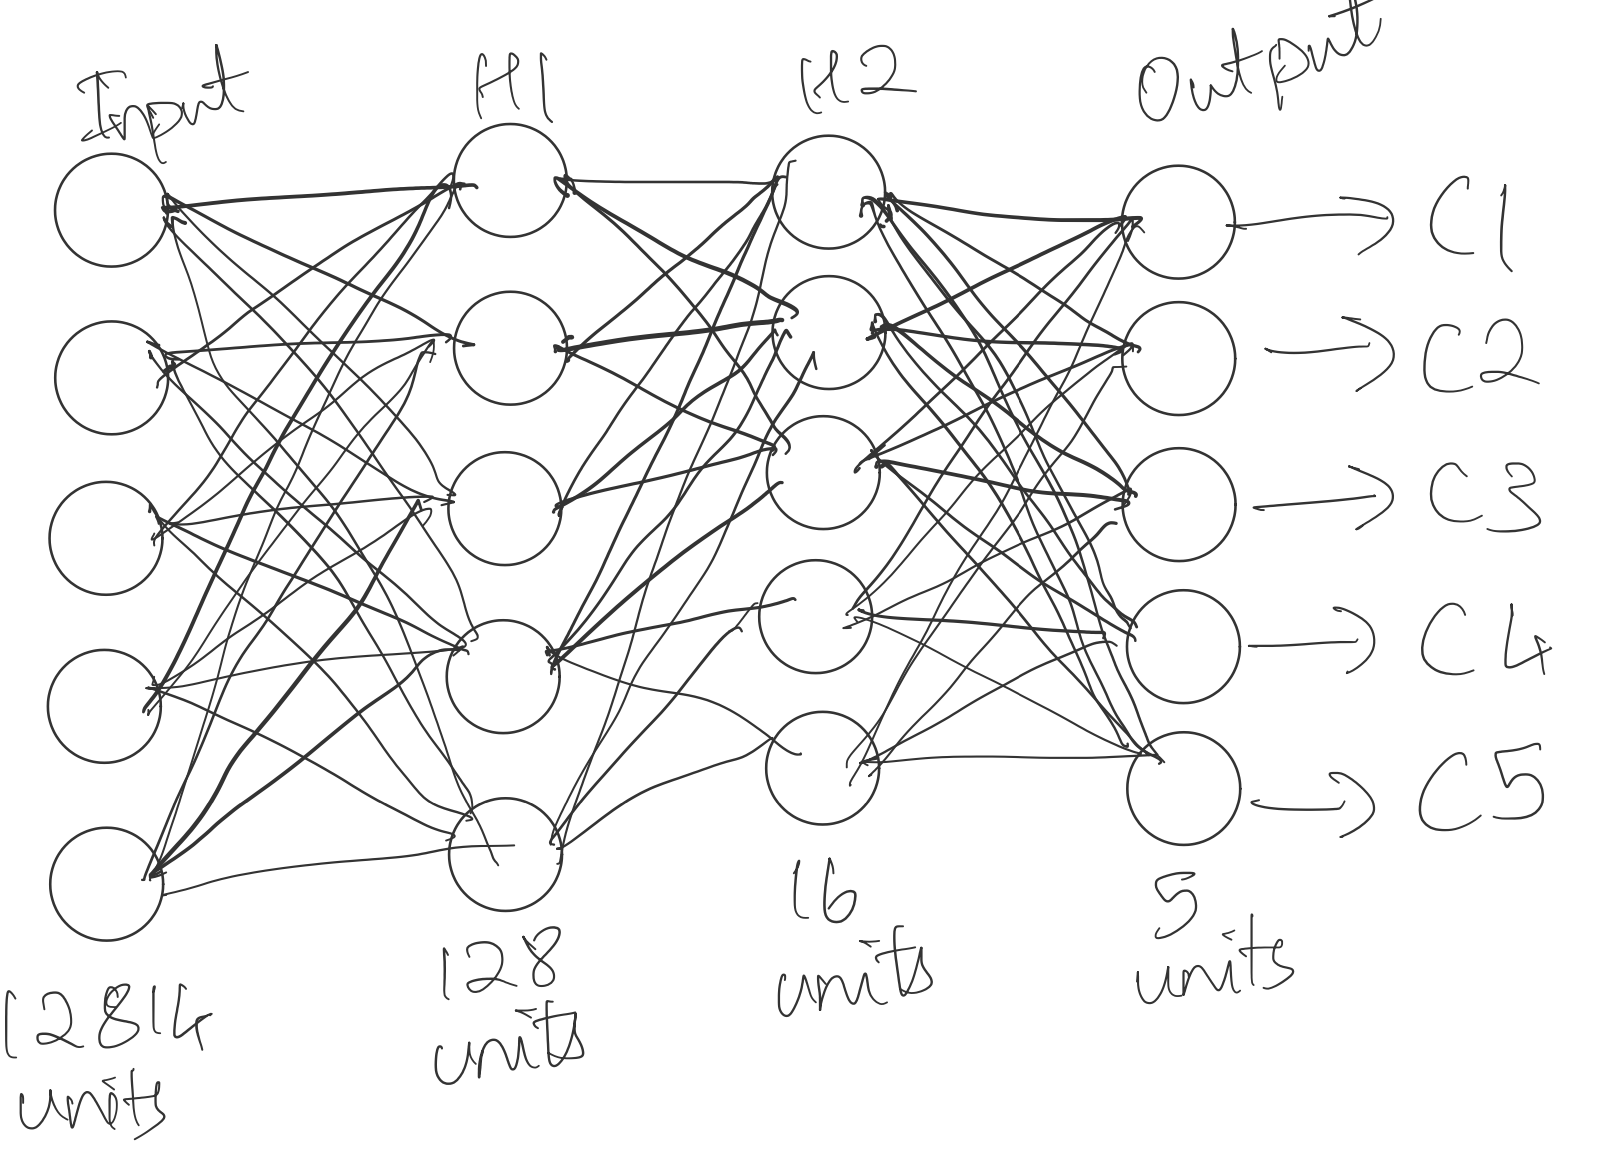 Input
H1
H2
Output
C1
C2
C3
C4
C5
12814
units
128
units
16
units
5
units